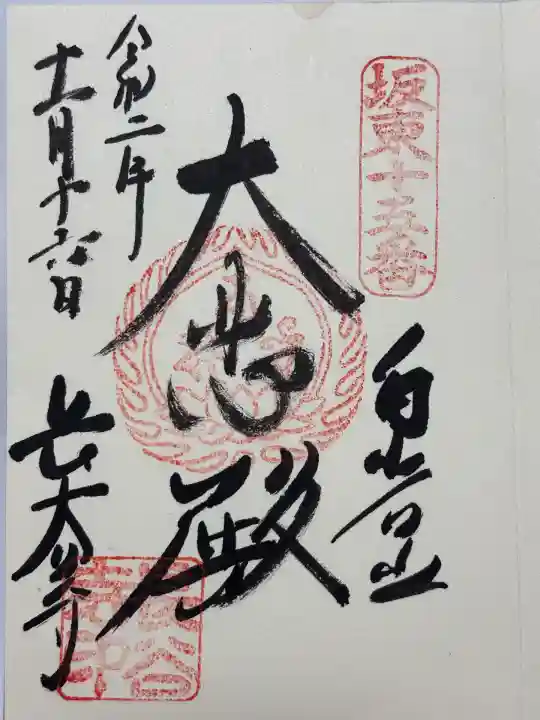 坂東十五番
白岩山
大悲殿
令和二年
十一月十六日
長谷寺